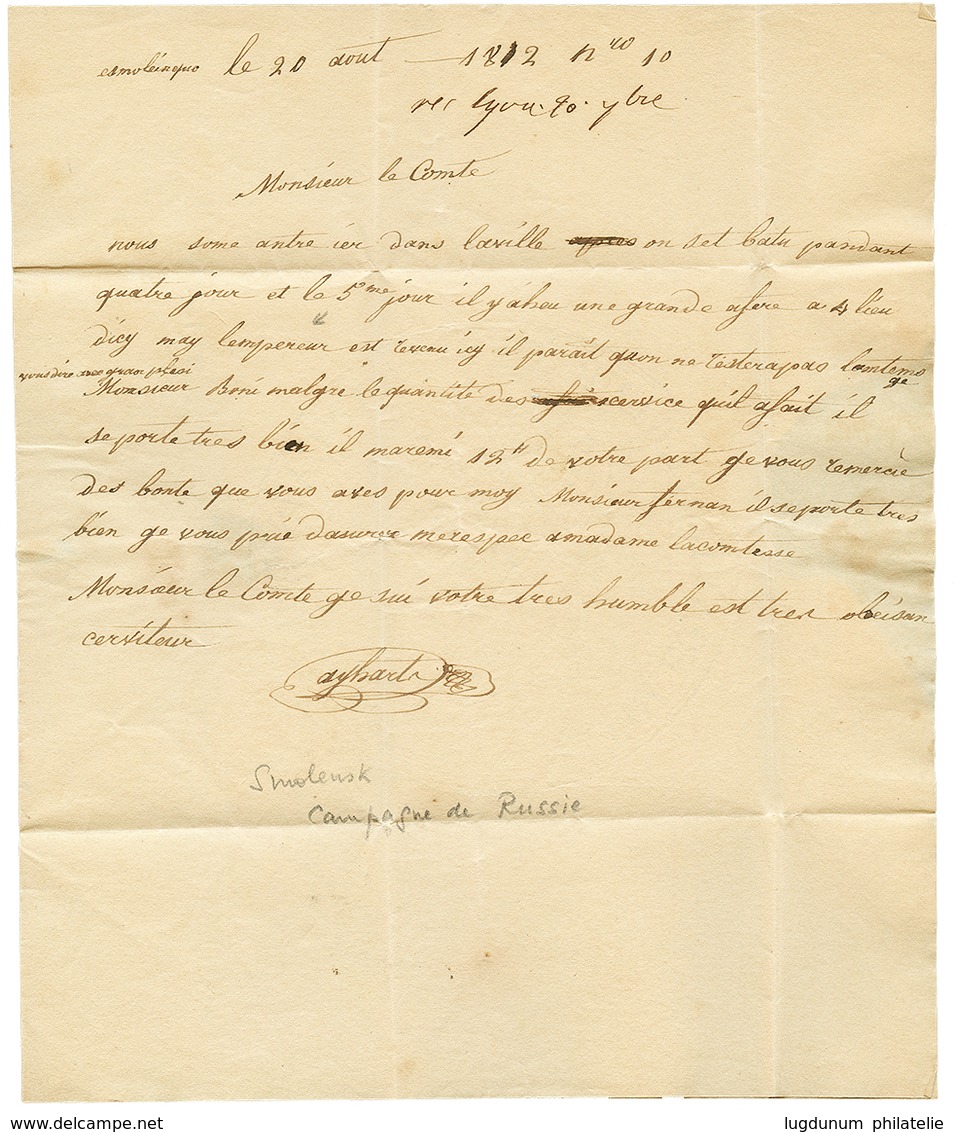 esmoleinquo le 20 aout — 1812 nro 10
rec lyon. 20. 7bre
Monsieur le Comte
nous some antre ier dans laville apres on set batu pandant
quatre jour et le 5me jour il y aheu une grande afere a 4 lieu
dicy may lempereur est revenu icy il parait quon ne resterapas lontems
ge
vous dire avec gran plesi
Monsieur Boni malgre le quantité des service quil afait il
se porte tres bien il maremi 12# de votre part ge vous remercie
des bonte que vous aves pour moy Monsieur fernan il se porte tres
bien ge vous prie dasurer merespec amadame lacomtesse
Monsieur le Comte ge sui votre tres humble est tres obeisan
cerviteur
ayhart
Smolensk
Campagne de Russie
www.delcampe.net
lugdunum philatelie